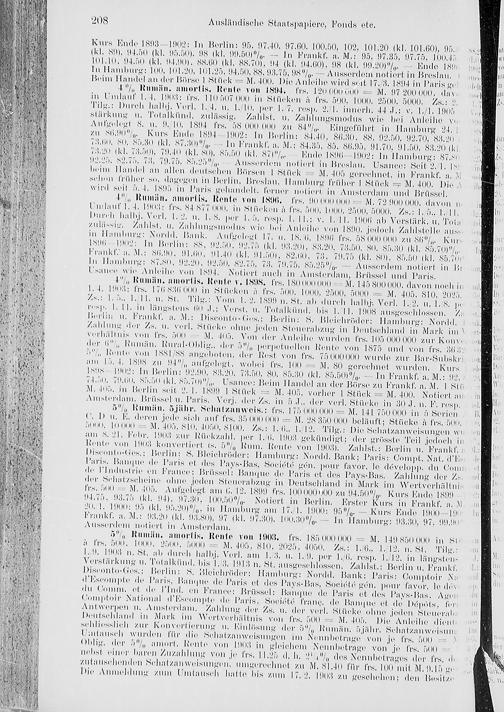 208 Ausländische Staatspapiere, Fonds etc.
Kurs Ende 1893—1902: In Berlin: 95, 97.40, 97.60, 100.50, 102, 101.20 (kl. 101.60), 95.
(kl. 89), 94.50 (kl. 95.50), 98 (kl. 99.50)%. — In Frankf. a. M.: 95, 97.35, 97.75, 100.45
101.10, 94.50 (kl. 94.90), 88.60 (kl. 88.70), 94 (kl. 94.60), 98 (kl. 99.20)%. — Ende 189
In Hamburg: 100, 101.20, 101.25, 94.50, 88, 93.75, 98%. — Ausserdem notiert in Breslau.
Beim Handel an der Börse 1 Stück = M. 400. Die Anleihe wird so it 17. 3. 1894 in Paris
4% Rumän. amortis. Rente von 1894. frs. 120 000 000 = M. 97 200 000, dav
in Umlauf 1. 4. 1903: frs. 110 507 000 in Stücken à frs. 500, 1000, 2500, 5000. Zs.:
Tilg.: Durch halbj. Verl. 1. 4. u. 1. 10. per 1. 7. resp. 2. 1. innerh. 44 J.; v. 1. 1. 1905
stärkung u. Totalkünd. zulässig. Zahlst. u. Zahlungsmodus wie bei Anleihe
Aufgelegt 8. u. 9. 10. 1894 frs. 58 000 000 zu 84%. Eingeführt in Hamburg 24. 1.
zu 86.90%. Kurs Ende 1894—1902: In Berlin: 84.40, 86.30, 88, 92.50, 92.70, 83.20
73.60, 80, 85.30 (kl. 87.30)%. — In Frankf. a. M.: 84.35, 85, 86.95, 91.70, 91.50, 83.20 (kl.
73.20 (kl. 73.50), 79.40 (kl. 80), 85.50 (kl. 87)%. Ende 1896—1902: In Hamburg: 87.80
92.25, 82.75, 73, 79.75, 85.25%. — Ausserdem notiert in Breslau. Usance: Seit 2. 1.
beim Handel an allen deutschen Börsen 1 Stück = M. 405 gerechnet, in Frankf. a. M
schon früher so, dagegen in Berlin, Breslau, Hamburg früher 1 Stück = M. 400. Die
wird seit 5. 4. 1895 in Paris gehandelt, ferner notiert in Amsterdam und Brüssel.
4% Rumän. amortis. Rente von 1896. frs. 90 000 000 = M. 72 900 000, davon
Umlauf 1. 4. 1903: frs. 84 877 000, in Stücken à frs. 500, 1000, 2500, 5000. Zs.: 1. 5., 1. 11.
Durch halbj. Verl. 1. 2. u. 1. 8. per 1. 5. resp. 1. 11.; v. 1. 11. 1906 ab Verstärk. u. Tota
zulässig. Zahlst. u. Zahlungsmodus wie bei Anleihe von 1890, jedoch Zahlstelle
in Hamburg: Nordd. Bank. Aufgelegt 17. u. 18. 6. 1896 frs. 58 000 000 zu 86%. Kurs
1896—1902: In Berlin: 88, 92.50, 92.75 (kl. 93.20), 83.20, 73.50, 80, 85.30 (kl. 85.70)%
Frankf. a. M.: 86.90, 91.60, 91.40 (kl. 91.50), 82.60, 73, 79.75 (kl. 80), 85.50 (kl. 85.70
in Hamburg: 87.80, 92.20, 92.50, 82.75, 73, 79.75, 85.25%. — Ausserdem notiert in
Usance wie Anleihe von 1894. Notiert auch in Amsterdam, Brüssel und Paris.
4% Rumän. amortis. Rente v. 1898. frs. 180 000 000 = M. 145 800 000, davon noch in
1. 4. 1903: frs. 176 836 000 in Stücken à frs. 500, 1000, 2500, 5000 = M. 405, 810, 2025,
Zs.: 1. 5., 1. 11. n. St. Tilg.: Vom 1. 2. 1899 n. St. ab durch halbj. Verl. 1. 2. u. 1. 8. p
resp. 1. 11. in längstens 60 J.; Verst. u. Totalkünd. bis 1. 11. 1908 ausgeschlossen. Z
Berlin u. Frankf. a. M.: Disconto-Ges.; Berlin: S. Bleichröder; Hamburg: Nordd.
Zahlung der Zs. u. verl. Stücke ohne jeden Steuerabzug in Deutschland in Mark im
verhältnis von frs. 500 = M. 405. Von der Anleihe wurden frs. 105 000 000 zur Konv
der 6% Rumän. Rural-Oblig., der 5% perpetuellen Rente von 1875 und von frs. 36
5% Rente von 1881/88 angeboten, der Rest von frs. 75 000 000 wurde zur Bar-Subskr
am 15. 4. 1898 zu 94% aufgelegt, wobei frs. 100 = M. 80 gerechnet wurden. Kurs
1898—1902: In Berlin: 92.90, 83.20, 74.50, 80, 85.30 (kl. 85.50)%. — In Frankf. a. M.: 92.
74.50, 79.60, 85.50 (kl. 85.70)%. Usance: Beim Handel an der Börse zu Frankf. a. M. 1
M. 405, in Berlin seit 2. 1. 1899 1 Stück = M. 405, vorher 1 Stück = M. 400. Notiert
Amsterdam, Brüssel u. Paris. Verj. der Zs. in 5 J., der verl. Stücke in 30 J. n. F. resp.
5% Rumän. 5jähr. Schatzanweis.: frs. 175 000 000 = M. 141 750 000 in 5 Serien
C, D u. E, deren jede sich auf frs. 35 000 000 = M. 28 350 000 beläuft; Stücke à frs. 500,
5000, 10 000 = M. 405, 810, 4050, 8100. Zs.: 1. 6., 1. 12. Tilg.: Die Schatzanweisungen
am 8./21. Febr. 1903 zur Rückzahl. per 1. 6. 1903 gekündigt; der grösste Teil jedoch in
Rente von 1903 konvertiert (s. 5% Rum. Rente von 1903). Zahlst.: Berlin u. Frankf.
Disconto-Ges.; Berlin: S. Bleichröder; Hamburg: Nordd. Bank; Paris: Compt. Nat. d'E
Paris, Banque de Paris et des Pays-Bas, Société gén. pour favor. le développ. du Com
de l'Industrie en France; Brüssel: Banque de Paris et des Pays-Bas. Zahlung der Zs.
der Schatzscheine ohne jeden Steuerabzug in Deutschland in Mark im Wertverhältnis
frs. 500 = M. 405. Aufgelegt am 6. 12. 1899 frs. 100 000 000 zu 94.50%. Kurs Ende 1899
94.75, 93.75 (kl. 94), 97.30, 100.50%. Notiert in Berlin. Erster Kurs in Frankf. a. M
20. 1. 1900: 95 (kl. 95.20)%, in Hamburg am 17. 1. 1900: 95%. — Kurs Ende 1900—190
Frankf. a. M.: 93.20 (kl. 93.80), 97 (kl. 97.30), 100.30%. — In Hamburg: 93.30, 97, 99.90
Ausserdem notiert in Amsterdam.
5% Rumän. amortis. Rente von 1903. frs. 185 000 000 = M. 149 850 000 in St
à frs. 500, 1000, 2500, 5000 = M. 405, 810, 2025, 4050. Zs.: 1. 6., 1. 12. n. St. Tilg.:
1. 9. 1903 n. St. ab durch halbj. Verl. am 1. 3. u. 1. 9. per 1. 6. resp. 1. 12. in längsten
Verstärkung u. Totalkünd. bis 1. 3. 1913 n. St. ausgeschlossen. Zahlst.: Berlin u. Frankf.
Disconto-Ges.; Berlin: S. Bleichröder; Hamburg: Nordd. Bank; Paris: Comptoir Na
d'Escompte de Paris, Banque de Paris et des Pays-Bas, Société gén. pour favor. le dév
du Comm. et de l'Ind. en France; Brüssel: Banque de Paris et des Pays-Bas,
Comptoir National d'Escompte de Paris, Société franç. de Banque et de Dépôts, fer
Antwerpen u. Amsterdam. Zahlung der Zs. u. der verl. Stücke ohne jeden Steuerab
Deutschland in Mark im Wertverhältnis von frs. 500 = M. 405. Die Anleihe dient
schliesslich zur Konvertierung u. Einlösung der 5% Rumän. 5jähr. Schatzanweisun
Umtausch wurden für die Schatzanweisungen im Nennbetrage von je frs. 500 =
Oblig. der 5% amort. Rente von 1903 in gleichem Nennbetrage von je frs. 500 =
nebst einer baren Zuzahlung von je frs. 11.25 d. h. 2¼% des Nennbetrages der frs.
zutauschenden Schatzanweisungen, umgerechnet zu M. 81.40 für frs. 100 mit M. 9.15
Die Anmeldung zum Umtausch hatte bis zum 17. 2. 1903 zu geschehen; den Besitze